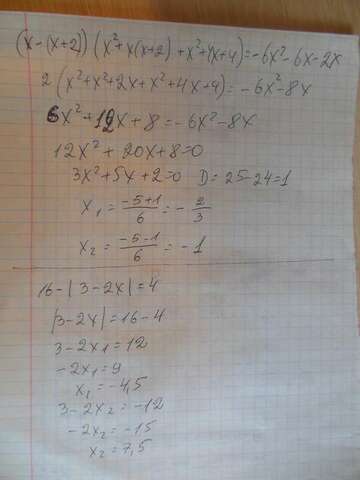 (x-(x+2))(x²+x(x+2)+x²+4x+4)=-6x²-6x-2x
2(x²+x²+2x+x²+4x+4)=-6x²-8x
6x²+12x+8=-6x²-8x
12x²+20x+8=0
3x²+5x+2=0 D=25-24=1
x₁=(-5+1)/6=-2/3
x₂=(-5-1)/6=-1
16-|3-2x|=4
|3-2x|=16-4
3-2x₁=12
-2x₁=9
x₁=-4,5
3-2x₂=-12
-2x₂=-15
x₂=7,5